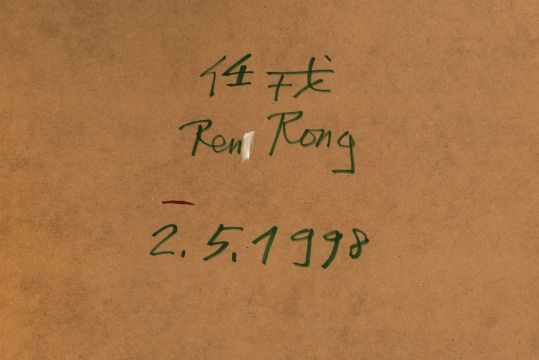 任戎
Ren Rong
2.5.1998